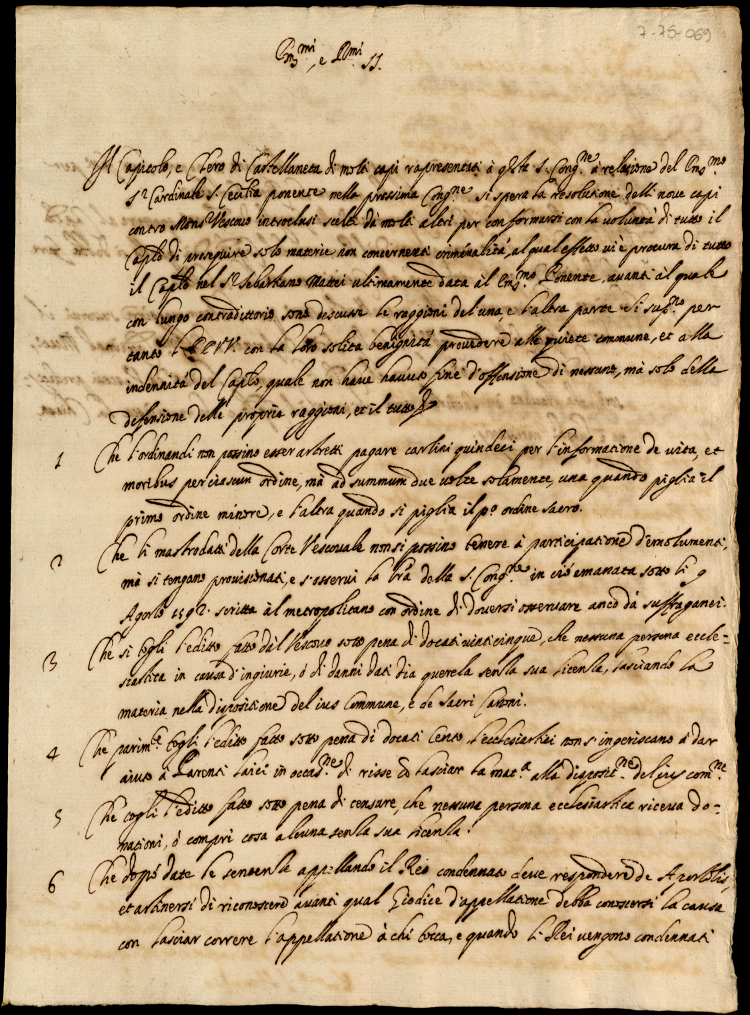 7-75-069
Em.mi, e R.mi SS.
Il Capitolo, e Clero di Castellaneta di molti capi rapresentati à q.sta S. Cong.ne à relatione del Em.mo
S.r Cardinale S. Cecilia ponente nella prossima Cong.ne si spera la resolutione dalli nove capi
contro Mons. Vescovo introclusi scelti da molti altri per conformarsi con la voluntà di tutto il
Caplo di proseguire solo materie non concernenti criminalità, al qual effetto vi è procura di tutto
il Caplo nel S.r Sebastiano Mattei ultimamente data al Em.mo Ponente, avanti al quale
con lungo contradittorio sono descusse le raggioni del una, e l'altra parte si sup.no per
tanto l'EE.VV. con la loro solita benignità provedere alle quiete commune, et alla
indennità del Caplo, quale non have havuto fine d'offensione di nessuno, mà solo della
defensione delle propria raggioni, et il tutto
1 Che l'ordinandi non possino esser astretti pagare carlini quindeci per l'informatione de vita, et
moribus per ciascun ordine, mà ad summum due volte solamente, una quando piglia il
primo ordine minore, e l'altra quando si piglia il p.o ordine sacro.
2 Che li mastrodatti della Corte Vescovale non si possino tenere à participatione d'emolumenti,
mà si tengano provisionati, e s'osservi la l'ra della S. Cong.ne in ciò emanata sotto li 9
Agosto 1592. scritta al metropolitano con ordine di doversi osservare anco dà suffraganei.
3 Che si togli l'editto fatto dal Vescovo sotto pena di docati vinticinque, che nessuna persona eccle=
siastica in causa d'ingiurie, ò di danni dati dia querela senza sua licenza, lasciando la
materia nella dispositione del ius Commune, e de Sacri Canoni.
4 Che parim.te togli l'editto fatto sotto pena di docati cento l'ecclesiastici non s'ingeriscano à dar
aiuto à Parenti laici in occas.ne di risse lasciar la mat.a alla disposit.ne del ius com.ne
5 Che togli l'editto fatto sotto pena di censure, che nessuna persona ecclesiastica riceva do=
nationi, ò compri cosa alcuna senza sua licenza.
6 Che dopò date le sentenza appellando il Reo condennato deve respondere de Apostolis,
et astinersi di riconoscere avanti qual Giodice d'appellatione debba conoscersi la causa
con lasciar correre l'appellatione à chi tocca, e quando li Rei vengono condennati